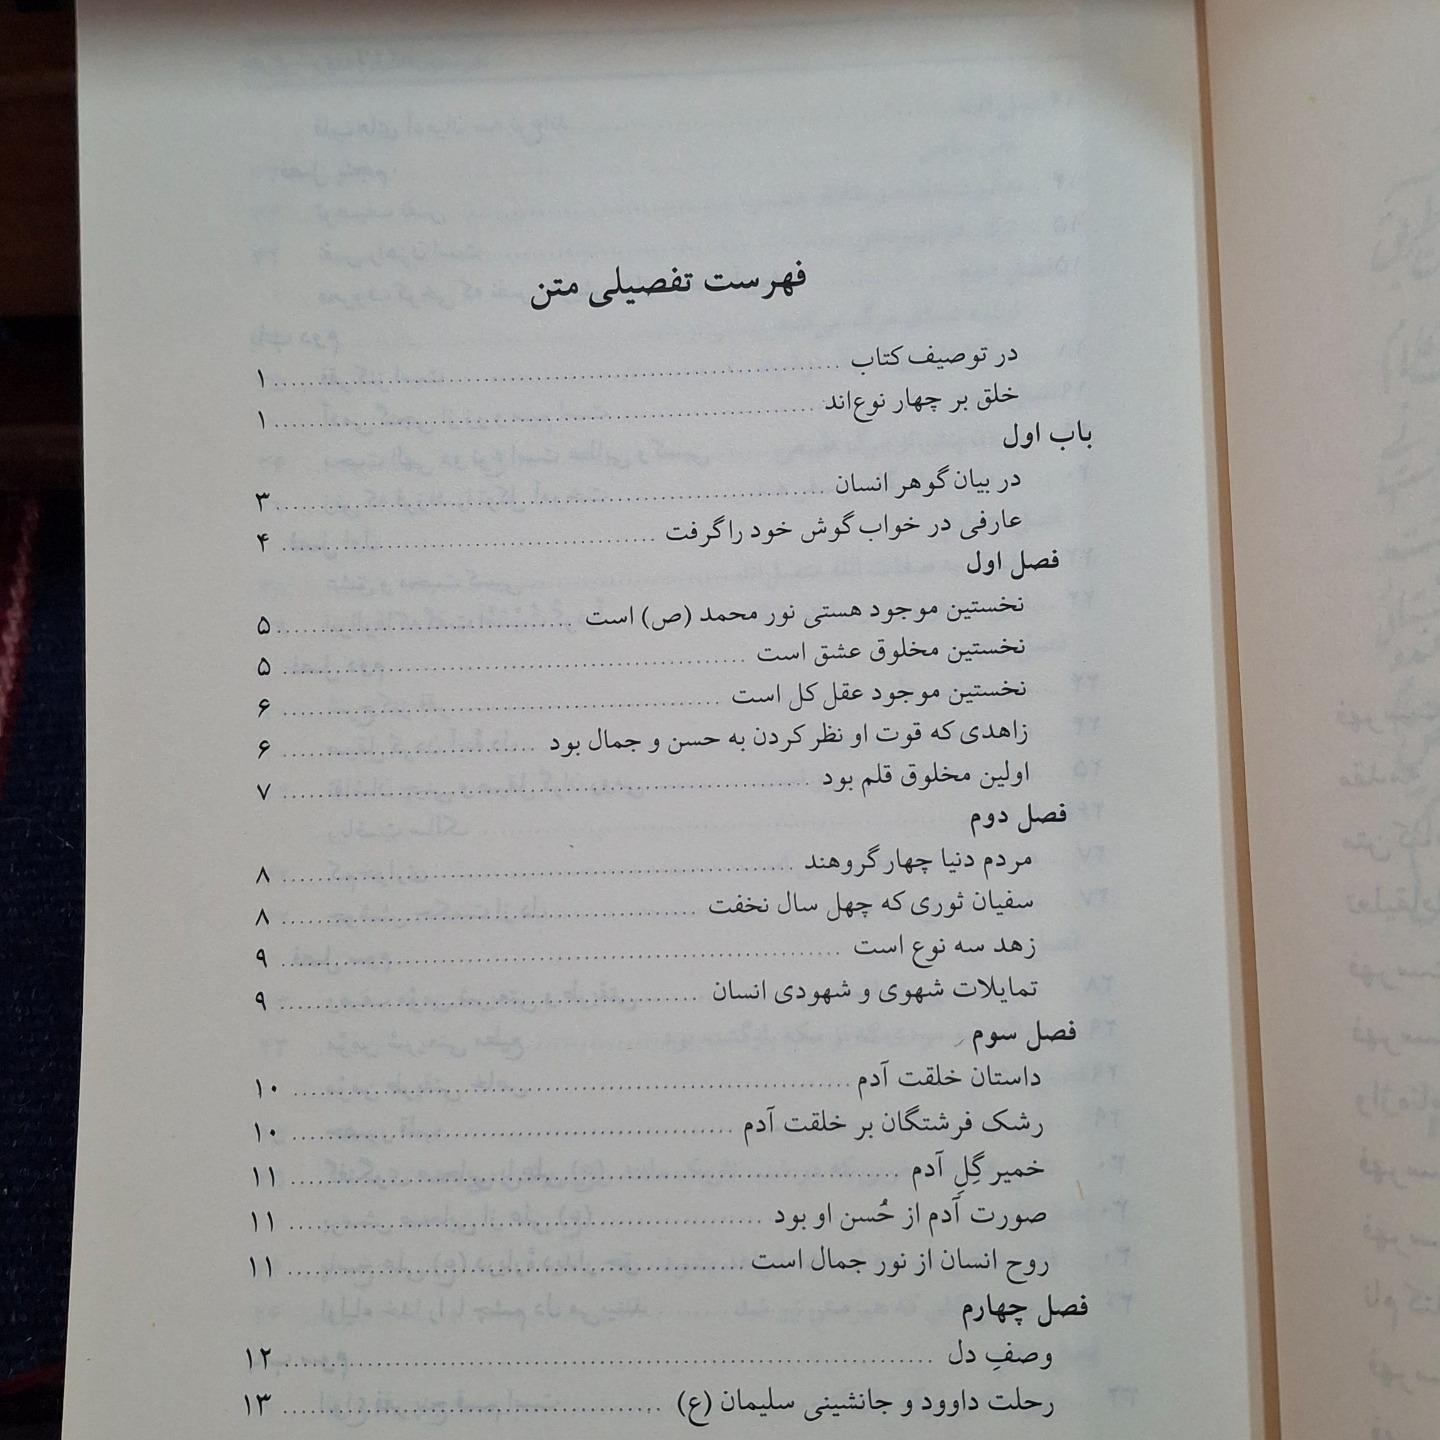 فهرست تفصیلی متن
در توصیف کتاب ۱
خلق بر چهار نوع‌اند ۱
باب اول
در بیان گوهر انسان ۳
عارفی در خواب گوش خود را گرفت ۴
فصل اول
نخستین موجود هستی نور محمد (ص) است ۵
نخستین مخلوق عشق است ۵
نخستین موجود عقل کل است ۶
زاهدی که قوت او نظر کردن به حسن و جمال بود ۶
اولین مخلوق قلم بود ۷
فصل دوم
مردم دنیا چهار گروهند ۸
سفیان ثوری که چهل سال نخفت ۸
زهد سه نوع است ۹
تمایلات شهوی و شهودی انسان ۹
فصل سوم
داستان خلقت آدم ۱۰
رشک فرشتگان بر خلقت آدم ۱۰
خمیر گِلِ آدم ۱۱
صورت آدم از حُسن او بود ۱۱
روح انسان از نور جمال است ۱۱
فصل چهارم
وصفِ دل ۱۲
رحلت داوود و جانشینی سلیمان (ع) ۱۳